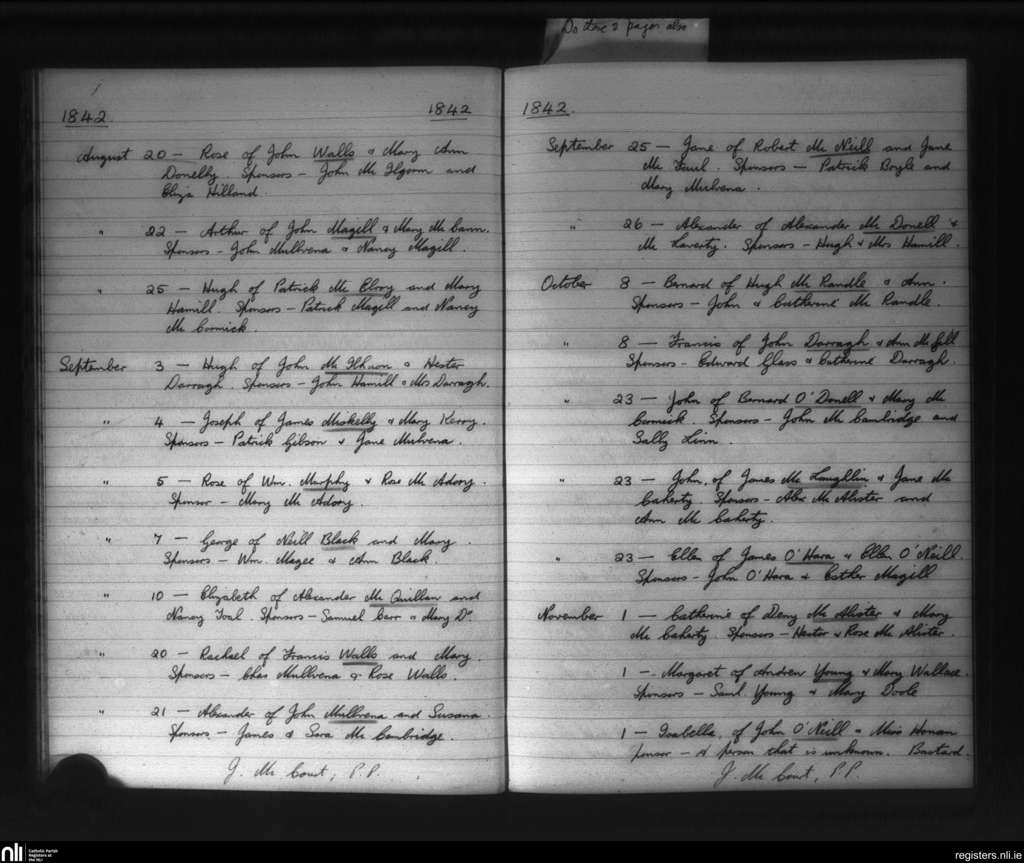 Do these 2 pages also
1842.
1842
August 20 — Rose of John Walls & Mary Ann
Donelly. Sponsors — John Mc Ilgorm and
Eliza Hilland.
" 22 — Arthur of John Magill & Mary Mc Cann.
Sponsors — John Mullvena & Nancy Magill.
" 25 — Hugh of Patrick Mc Elroy and Mary
Hamill. Sponsors — Patrick Magill and Nancy
Mc Cormick.
September 3 — Hugh of John Mc & Hester
Darragh. Sponsors — John Hamill & Mrs Darragh.
" 4 — Joseph of James Miskelly & Mary Kerry.
Sponsors — Patrick Gibson & Jane Mulvena.
" 5 — Rose of Wm. Murphy & Rose Mc Adory.
Sponsor — Mary Mc Adory.
" 7 — George of Neill Black and Mary.
Sponsors — Wm. Magee & Ann Black
" 10 — Elizabeth of Alexander Mc Quillan and
Nancy Toal. Sponsors — Samuel Carr & Mary Do.
" 20 — Rachael of Francis Walls and Mary.
Sponsors — Chas Mullvena & Rose Walls.
" 21 — Alexander of John Mullvena and Susana.
Sponsors — James & Sara Mc Cambridge.
J. Mc Court, P.P.
1842.
September 25 — Jane of Robert Mc Neill and Jane
Mc Faul. Sponsors — Patrick Boyle and
Mary Mulvena.
" 26 — Alexander of Alexander Mc Donell &
Mc Laverty. Sponsors — Hugh & Mrs Hamill.
October 8 — Bernard of Hugh Mc Randle & Ann.
Sponsors — John & Catherine Mc Randle.
" 8 — Francis of John Darragh & Ann Mc Gill
Sponsors — Edward Glass & Catherine Darragh.
" 23 — John of Bernard O'Donell & Mary Mc
Cormick Sponsors — John Mc Cambridge and
Sally Linn.
" 23 — John, of James Mc Laughlin & Jane Mc
Caherty. Sponsors — Alex Mc Alister and
Ann Mc Caherty.
" 23 — Ellen of James O'Hara & Ellen O'Neill.
Sponsors — John O'Hara & Esther Magill
November 1 — Catherine of Deny Mc Alister & Mary
Mc Caherty. Sponsors — Hester & Rose Mc Alister.
1 — Margaret of Andrew Young & Mary Wallace.
Sponsors — Saml Young & Mary Doole
1 — Isabella, of John O'Neill & Miss Honan
ponsor — A person that is unknown. Bastard.
J. Mc Court, P.P.
nli
Catholic Parish
Registers at
the NLI
registers.nli.ie